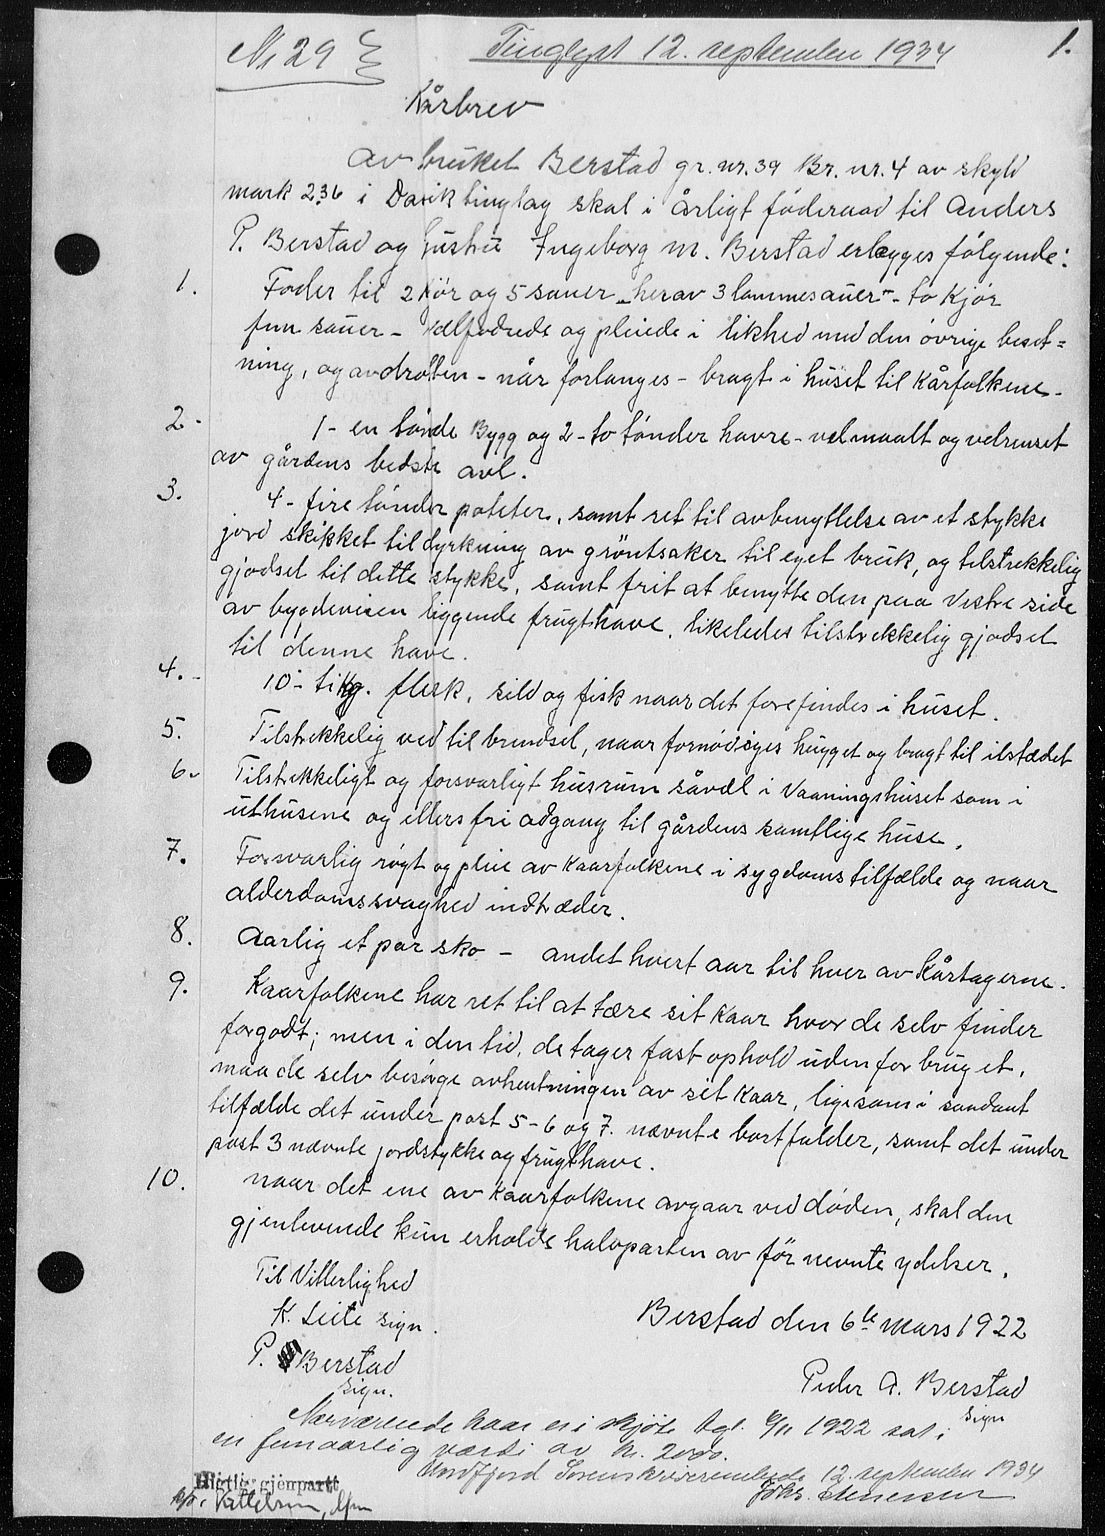 No 29
Tinglyst 12. september 1934
1.
Kårbrev
Av bruket Berstad gr. nr. 39 Br. nr. 4 av skyld
mark 2.36 i Davik tinglag skal i årligt føderaad til Anders
P. Berstad og hustru Ingeborg M. Berstad erlægges følgende:
1. Foder til 2 kjør og 5 sauer - herav 3 lammesauer - to kjør
fem sauer - velfødrede og pleiede i likhed med den øvrige beset=
ning, og avdråtten - når forlanges - bragt i huset til Kårfolkene.
2. 1 - en tønde Bygg og 2 - to tønder havre - velmaalt og velrenset
av gårdens bedste avl.
3. 4 - fire tønder poteter, samt ret til avbenyttelse av et stykke
jord skikket til dyrkning av grøntsaker til eget bruk, og tilstrekkelig
gjødsel til dette stykke, samt frit at benytte den paa Vestre side
av bygdeveien liggende frugthave, likeledes tilstrekkelig gjødsel
til denne have.
4. 10 - ti kg. flesk, sild og fisk naar det forefindes i huset.
5. Tilstrekkelig ved til brendsel, naar fornødiges hugget og bragt til ilstedet
6. Tilstrekkeligt og forsvarligt husrum såvel i Vaaningshuset som i
uthusene og ellers fri adgang til gårdens samtlige huse.
7. Forsvarlig røgt og pleie av Kaarfolkene i sygdomstilfælde og naar
alderdomssvaghed indtræder.
8. Aarlig et par sko - andet hvert aar til hver av Kårtagerne.
9. Kaarfolkene har ret til at tære sit Kaar hvor de selv finder
forgodt; men i den tid, de tager fast ophold uden for bruget,
maa de selv besørge avhentningen av sit Kaar, ligesom i saadant
tilfælde det under post 5-6 og 7. nævnte bortfalder, samt det under
post 3 nævnte jordstykke og frugthave.
10. Naar det ene av Kaarfolkene avgaar ved døden, skal den
gjenlevende kun erholde halvparten av før nevnte ydelser.
Til Vitterlighed
K. Leite sign.
P. Berstad
sign.
Berstad den 6te Mars 1922
Peder A. Berstad
sign
Nærværende kaar er i skjøte tgl. 6/11 1922 sat i
en femaarlig værdi av kr. 2000.
Nordfjord Sorenskriverembede 12. september 1934
Rigtig gjenpart